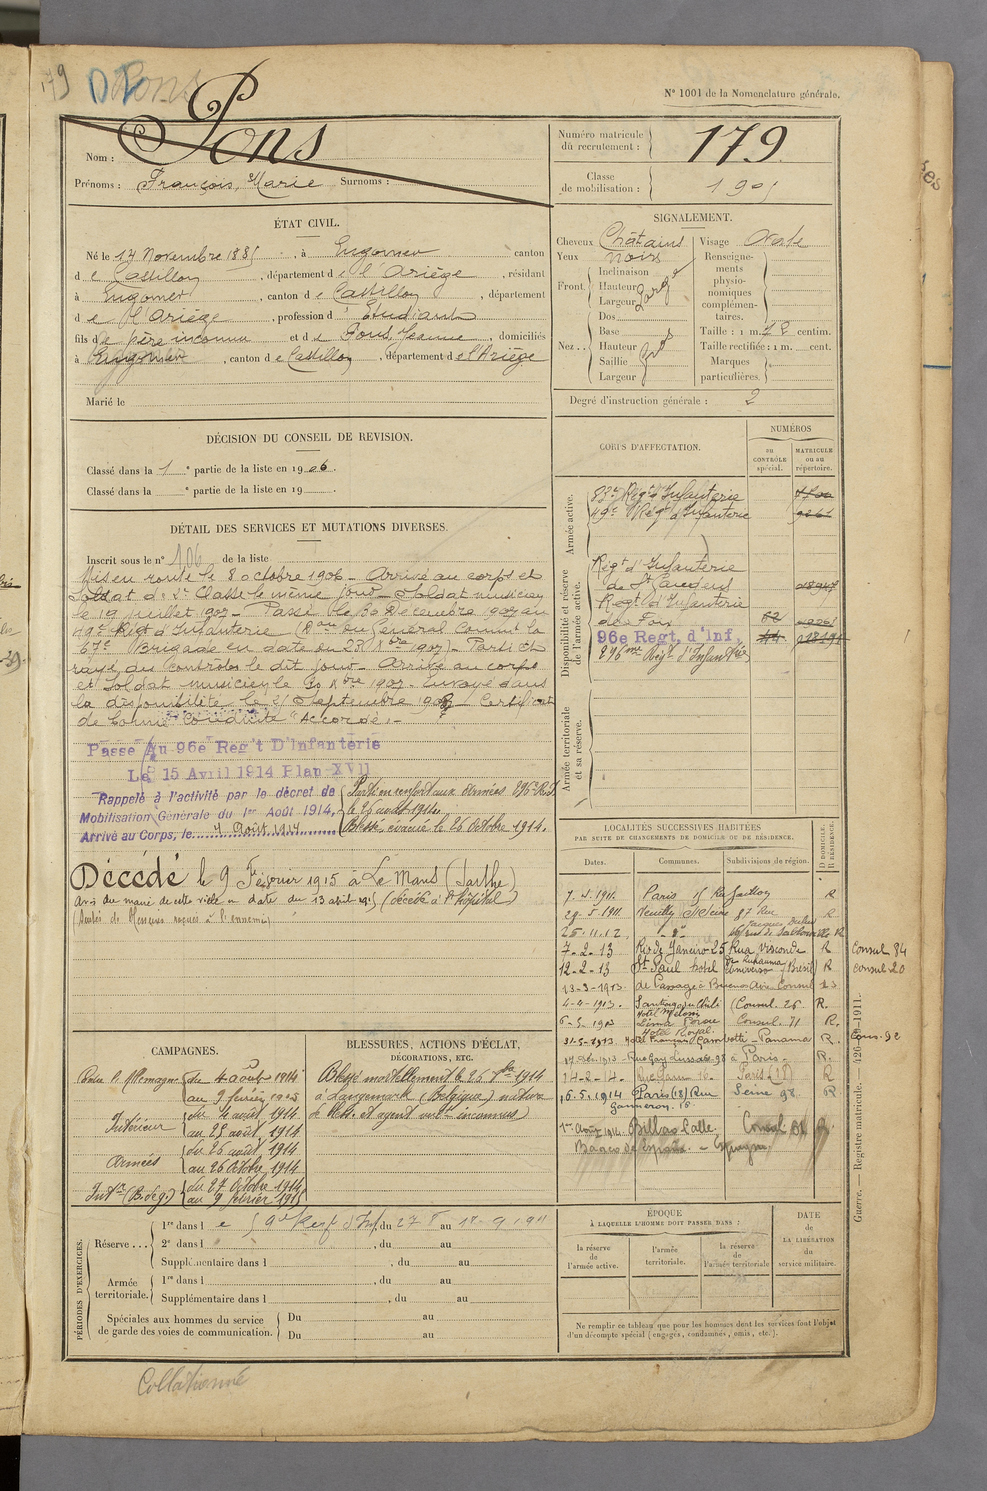 179 Pons
Nº 1001 de la Nomenclature générale.
Nom : Pons
Prénoms : François, Marie Surnoms :
Numéro matricule du recrutement : 179
Classe de mobilisation : 1905
ÉTAT CIVIL.
Né le 17 Novembre 1885, à Engomer canton
de Castillon, département de l'Ariège, résidant
à Engomer, canton de Castillon, département
de l'Ariège, profession d'Etudiant
fils de père inconnu et de Pons Jeanne, domiciliés
à Engomer, canton de Castillon, département de l'Ariège
Marié le
SIGNALEMENT.
Cheveux Châtains
Yeux noirs
Front. Inclinaison
Hauteur
Largeur
large
Nez . . Dos
Base
Hauteur
Saillie
Largeur
Visage Ovale
Renseignements physionomiques complémentaires.
Taille : 1 m. 72 centim.
Taille rectifiée : 1 m. cent.
Marques particulières.
Degré d'instruction générale : 2
DÉCISION DU CONSEIL DE REVISION.
Classé dans la 1e partie de la liste en 1906.
Classé dans la e partie de la liste en 19
DÉTAIL DES SERVICES ET MUTATIONS DIVERSES.
Inscrit sous le nº 106 de la liste
Mis en route le 8 octobre 1906 - Arrivé au corps et
Soldat de 2e Classe le même jour - Soldat musicien
le 19 juillet 1907 - Passé le 30 Décembre 1907 au
49e Régt d'Infanterie (Don du Général Commt la
67e Brigade en date du 23 Xbre 1907) - Parti et
rayé des contrôles le dit jour - Arrivé au corps
et Soldat musicien le 30 Xbre 1907 - Envoyé dans
la disponibilité le 25 Septembre 1908 - Certificat
de bonne Conduite "Accordé" -
Passé Au 96e Reg't D'Infanterie
Le 15 Avril 1914 Plan XVII
Rappelé à l'activité par le décret de
Mobilisation Générale du 1er Août 1914.
Arrivé au Corps, le 4 Août 1914
Parti en renfort aux Armées 296e R.I.
le 26 août 1914.
Blessé, évacué le 26 Octobre 1914.
Décédé le 9 Février 1915 à Le Mans (Sarthe)
Avis du maire de cette ville en date du 13 avril 1915 (décédé à l'hôpital)
(Suites de blessures reçues à l'ennemi)
CORPS D'AFFECTATION.
NUMÉROS
au CONTRÔLE spécial.
MATRICULE ou au répertoire.
Armée active.
83e Régt d'Infanterie
49e Régt d'Infanterie
Disponibilité et réserve de l'armée active.
Régt d'Infanterie
de St Gaudens
Régt d'Infanterie
de Foix
96e Regt. d'Inf.
296me Régt d'Infanterie
Armée territoriale et sa réserve.
LOCALITÉS SUCCESSIVES HABITÉES
PAR SUITE DE CHANGEMENTS DE DOMICILE OU DE RÉSIDENCE.
Dates. Communes. Subdivisions de région. D DOMICILE. R RÉSIDENCE.
7-4-1911. Paris 15 Rue Gaillon R
29-5-1911 Neuilly s/Seine 87 Rue R
25-11-12 -d°- R
7-2-13 Rio de Janeiro 25 Rua Visconde R Consul 84
12-2-13 St Paul hotel Universo (Brésil) R consul 20
13-3-1913 de Passage à Buenos Aires Consul
4-4-1913. Santiago du Chili (Consul. 26 R.
6-5-1913 Lima Hotel Royal Consul. 71 R.
31-5-1913 Hotel Français Gambotti - Panama R. Cons. 92
1913 - Rue Gay Lussac 98 à Paris - R.
14-2-14. Rue 16. Paris (18) R
16.5.1914 Paris (18) Rue Ganneron. 16 Seine 98. R
1er Août 1914. Bilbao Calle Consul R.
Espagne
CAMPAGNES.
Contre l'Allemagne du 4 août 1914
au 9 février 1915
Intérieur du 4 août 1914
au 25 août 1914
Armées du 26 août 1914
au 26 Octobre 1914
Intr (B. de g.) du 27 Octobre 1914
au 9 février 1915
BLESSURES, ACTIONS D'ÉCLAT,
DÉCORATIONS, ETC.
Blessé mortellement le 26 8bre 1914
à Langemark (Belgique) nature
de bless. et agent vult inconnus)
PÉRIODES D'EXERCICES.
Réserve . . . 1re dans le 59e Regt d'Inf. du 27 au 1911
2e dans l , du au
Supplémentaire dans l , du au
Armée territoriale. 1re dans l , du au
Supplémentaire dans l , du au
Spéciales aux hommes du service de garde des voies de communication. Du au
Du au
ÉPOQUE
À LAQUELLE L'HOMME DOIT PASSER DANS :
la réserve de l'armée active.
l'armée territoriale.
la réserve de l'armée territoriale
DATE DE LA LIBÉRATION du service militaire.
Ne remplir ce tableau que pour les hommes dont les services font l'objet
d'un décompte spécial (engagés, condamnés, omis, etc.).
Guerre. — Registre matricule. — 426-1911.
Collationné